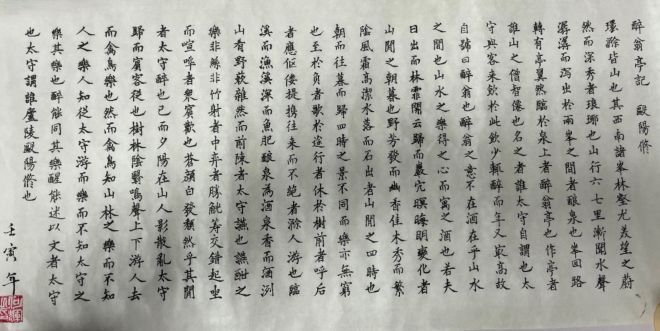 醉翁亭記 歐陽脩
環滁皆山也其西南諸峯林壑尤美望之蔚
然而深秀者琅琊也山行六七里漸聞水聲
潺潺而瀉出於兩峯之間者釀泉也峯回路
轉有亭翼然臨於泉上者醉翁亭也作亭者
誰山之僧智僊也名之者誰太守自謂也太
守與客來飲於此飲少輒醉而年又冣高故
自號曰醉翁也醉翁之意不在酒在乎山水
之間也山水之樂得之心而寓之酒也若夫
日出而林霏開云歸而巖穴暝晦明變化者
山間之朝暮也野芳發而幽香佳木秀而繁
陰風霜高潔水落而石出者山間之四時也
朝而往暮而歸四時之景不同而樂亦無窮
也至於負者歌於途行者休於樹前者呼后
者應傴僂提攜往來而不絕者滁人游也臨
溪而漁溪深而魚肥釀泉為酒泉香而酒洌
山肴野蔌雜然而前陳者太守讌也讌酣之
樂非絲非竹射者中弈者勝觥籌交錯起坐
而喧嘩者衆賓歡也蒼顏白發頹然乎其間
者太守醉也已而夕陽在山人影散亂太守
歸而賓客從也樹林陰翳鳴聲上下游人去
而禽鳥樂也然而禽鳥知山林之樂而不知
人之樂人知從太守游而樂而不知太守之
樂其樂也醉能同其樂醒能述以文者太守
也太守謂誰廬陵歐陽脩也
壬寅年